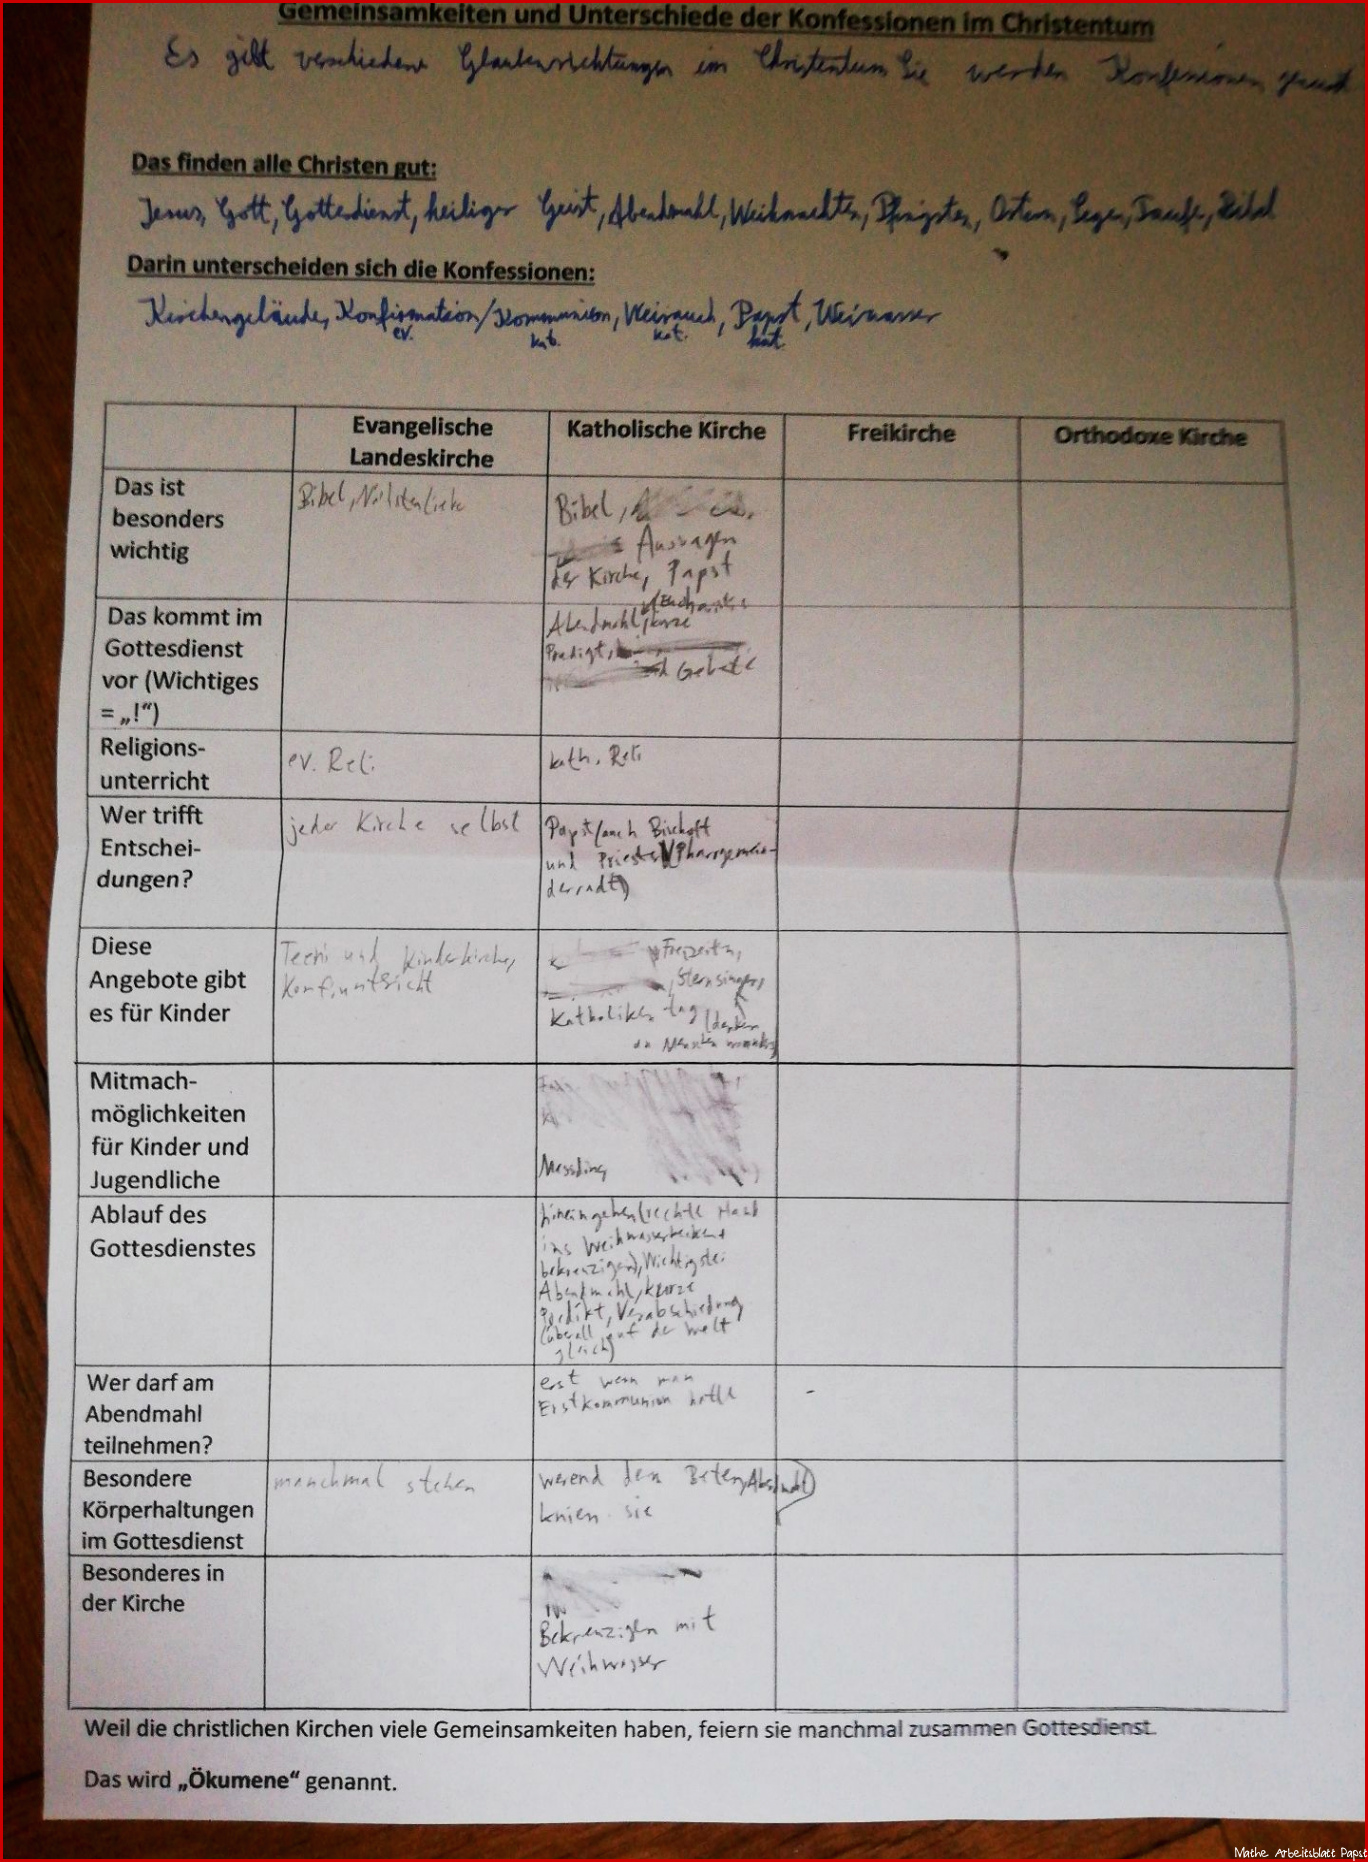 Gemeinsamkeiten und Unterschiede der Konfessionen im Christentum
Es gibt verschiedene Glaubensrichtungen im Christentum Sie werden Konfessionen
Das finden alle Christen gut:
Jesus, Gott, Gottesdienst, heiliger Geist, Abendmahl, Weihnachten, Pfingsten, Ostern, Segen, Taufe, Bibel
Darin unterscheiden sich die Konfessionen:
Kirchengebäude, Konfirmation/Kommunion, Weirauch, Papst, Weiwasser
ev. kat. kat. kat.
Evangelische
Landeskirche
Katholische Kirche
Freikirche
Orthodoxe Kirche
Das ist
besonders
wichtig
Bibel,
Bibel,
Aussagen
der Kirche, Papst
Das kommt im
Gottesdienst
vor (Wichtiges
= „!“)
Abendmahl, kurze
Predigt,
Gebete
Religions-
unterricht
ev. Reli
kath. Reli
Wer trifft
Entschei-
dungen?
jeder Kirche selbst
Papst(auch Bischoft
und Priester)(Pharrgemein-
derradt)
Diese
Angebote gibt
es für Kinder
Teeni und Kinderkirche,
Freizeiten,
Sternsinger,
Katholikentag
Mitmach-
möglichkeiten
für Kinder und
Jugendliche
Ablauf des
Gottesdienstes
hineingehen(rechte Hand
ins Weihwasserbecken+
bekreuzigen), Wichtigste:
Abendmahl, kurze
Predikt, Verabschiedung
(überall auf der Welt
gleich)
Wer darf am
Abendmahl
teilnehmen?
erst wenn man
Erstkommunion hatte
-
Besondere
Körperhaltungen
im Gottesdienst
manchmal stehen
werend dem Beten,
knien sie
Besonderes in
der Kirche
Bekreuzigen mit
Weihwasser
Weil die christlichen Kirchen viele Gemeinsamkeiten haben, feiern sie manchmal zusammen Gottesdienst.
Das wird „Ökumene“ genannt.
Mathe Arbeitsblatt Papst